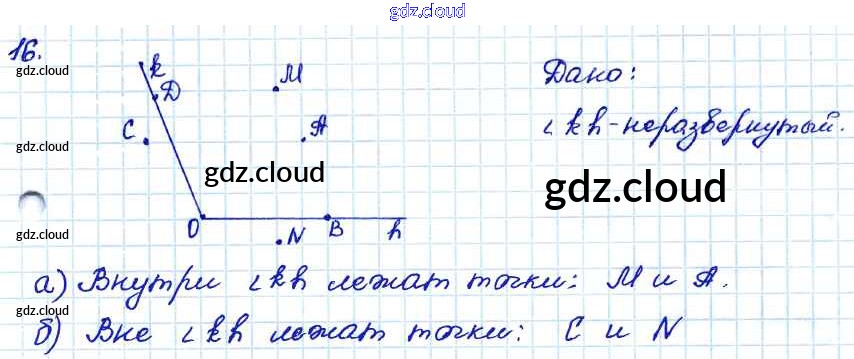 gdz.cloud
16.
gdz.cloud
k
D
M
C
A
Дано:
∠kh - неразвернутый.
gdz.cloud
gdz.cloud
gdz.cloud
gdz.cloud
O
N
B
h
gdz.cloud
а) Внутри ∠kh лежат точки: М и А.
gdz.cloud
б) Вне ∠kh лежат точки: С и N
gdz.cloud